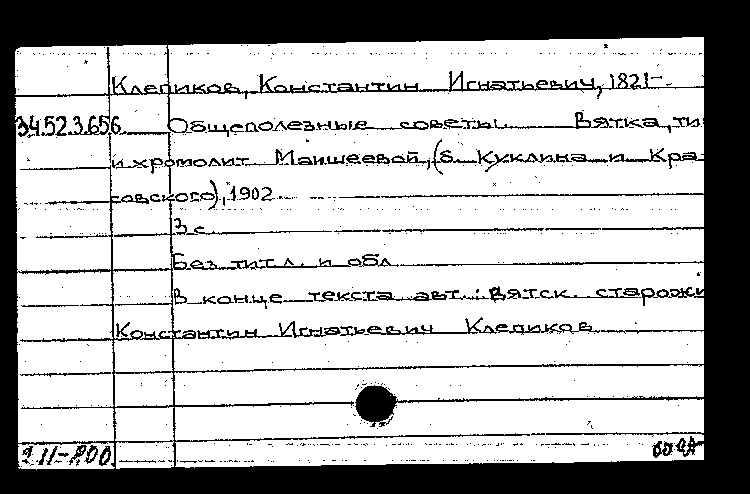 Клепиков, Константин Игнатьевич, 1821-
34.52.3.656 Общеполезные советы. Вятка, ти
и хромолит. Маишеевой, (б. Куклина и Кра-
совского), 1902.
3 с.
Без тит. л. и обл.
В конце текста авт.: Вятск. старожи
Константин Игнатьевич Клепиков
211-200